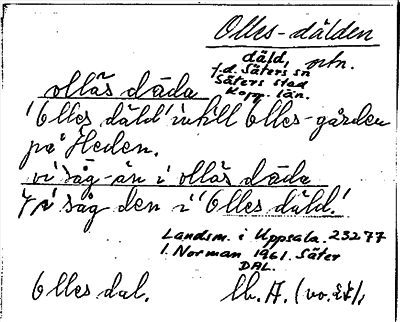 Olles-dälden
däld, ptn.
f.d. Säters sn
Säters stad
Kopp. län.
ollas däda
'Olles däld' intill Olles-gården
på Heden.
vi såg-än i ollas däda
'Vi såg den i "Olles däld".'
Landsm. i Uppsala. 23277
I. Norman 1961. Säter
DAL.
Olles dal.